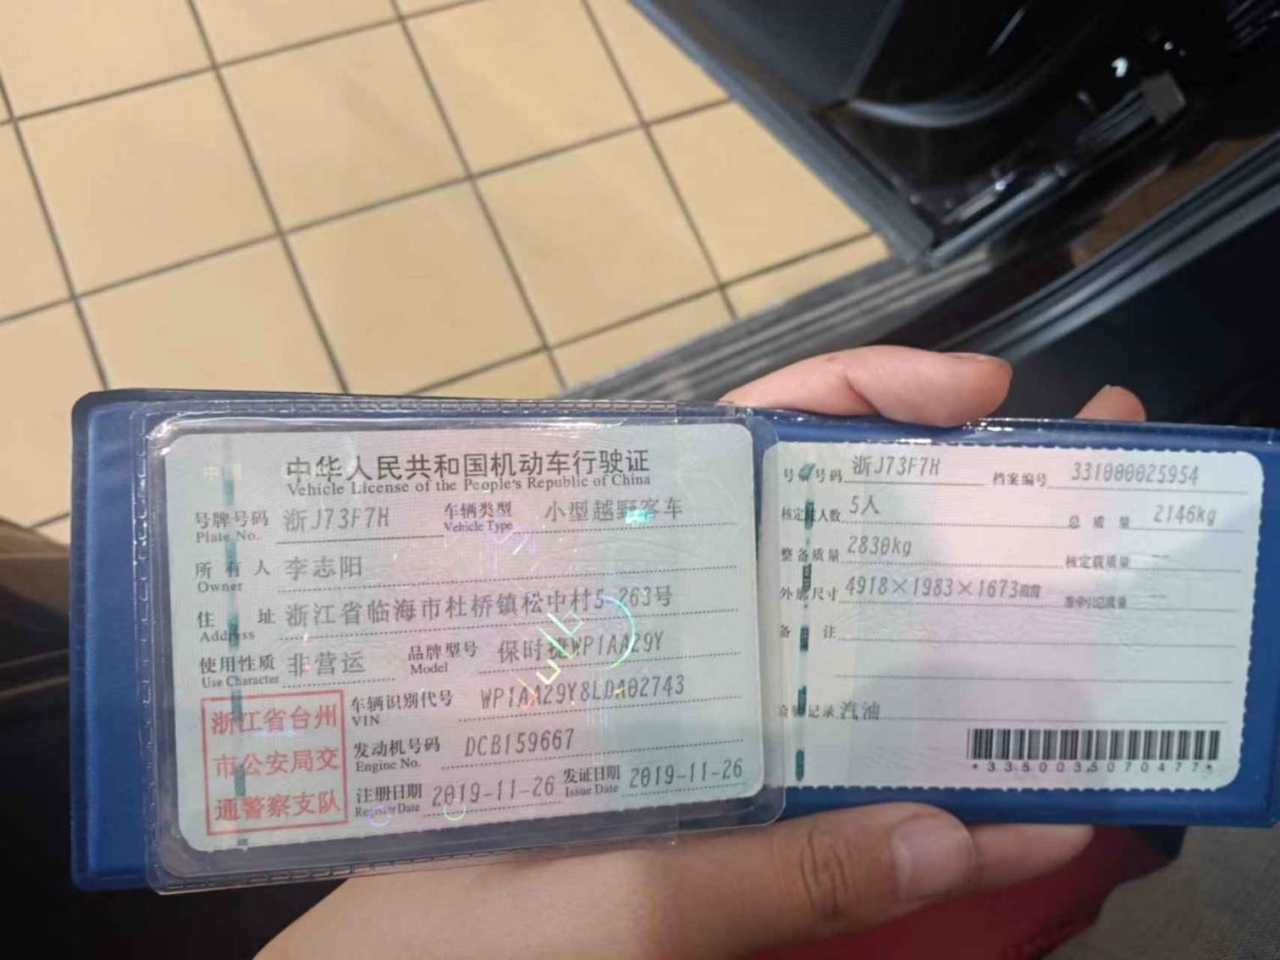 中华人民共和国机动车行驶证
Vehicle License of the People's Republic of China
号牌号码 浙J73F7H 车辆类型 小型越野客车
Plate No. Vehicle Type
所有人 李志阳
Owner
住址 浙江省临海市杜桥镇松中村5-263号
Address
使用性质 非营运 品牌型号 保时捷WP1AA29Y
Use Character Model
浙江省台州
市公安局交
通警察支队
车辆识别代号 WP1AA29Y8LDA02743
VIN
发动机号码 DCB159667
Engine No.
注册日期 2019-11-26 发证日期 2019-11-26
Register Date Issue Date
号 号码 浙J73F7H 档案编号 331000025954
核定 人数 5人 总质量 2146kg
整备质量 2830kg 核定载质量
外廓尺寸 4918×1983×1673
备注
记录 汽油
*3350035070477*